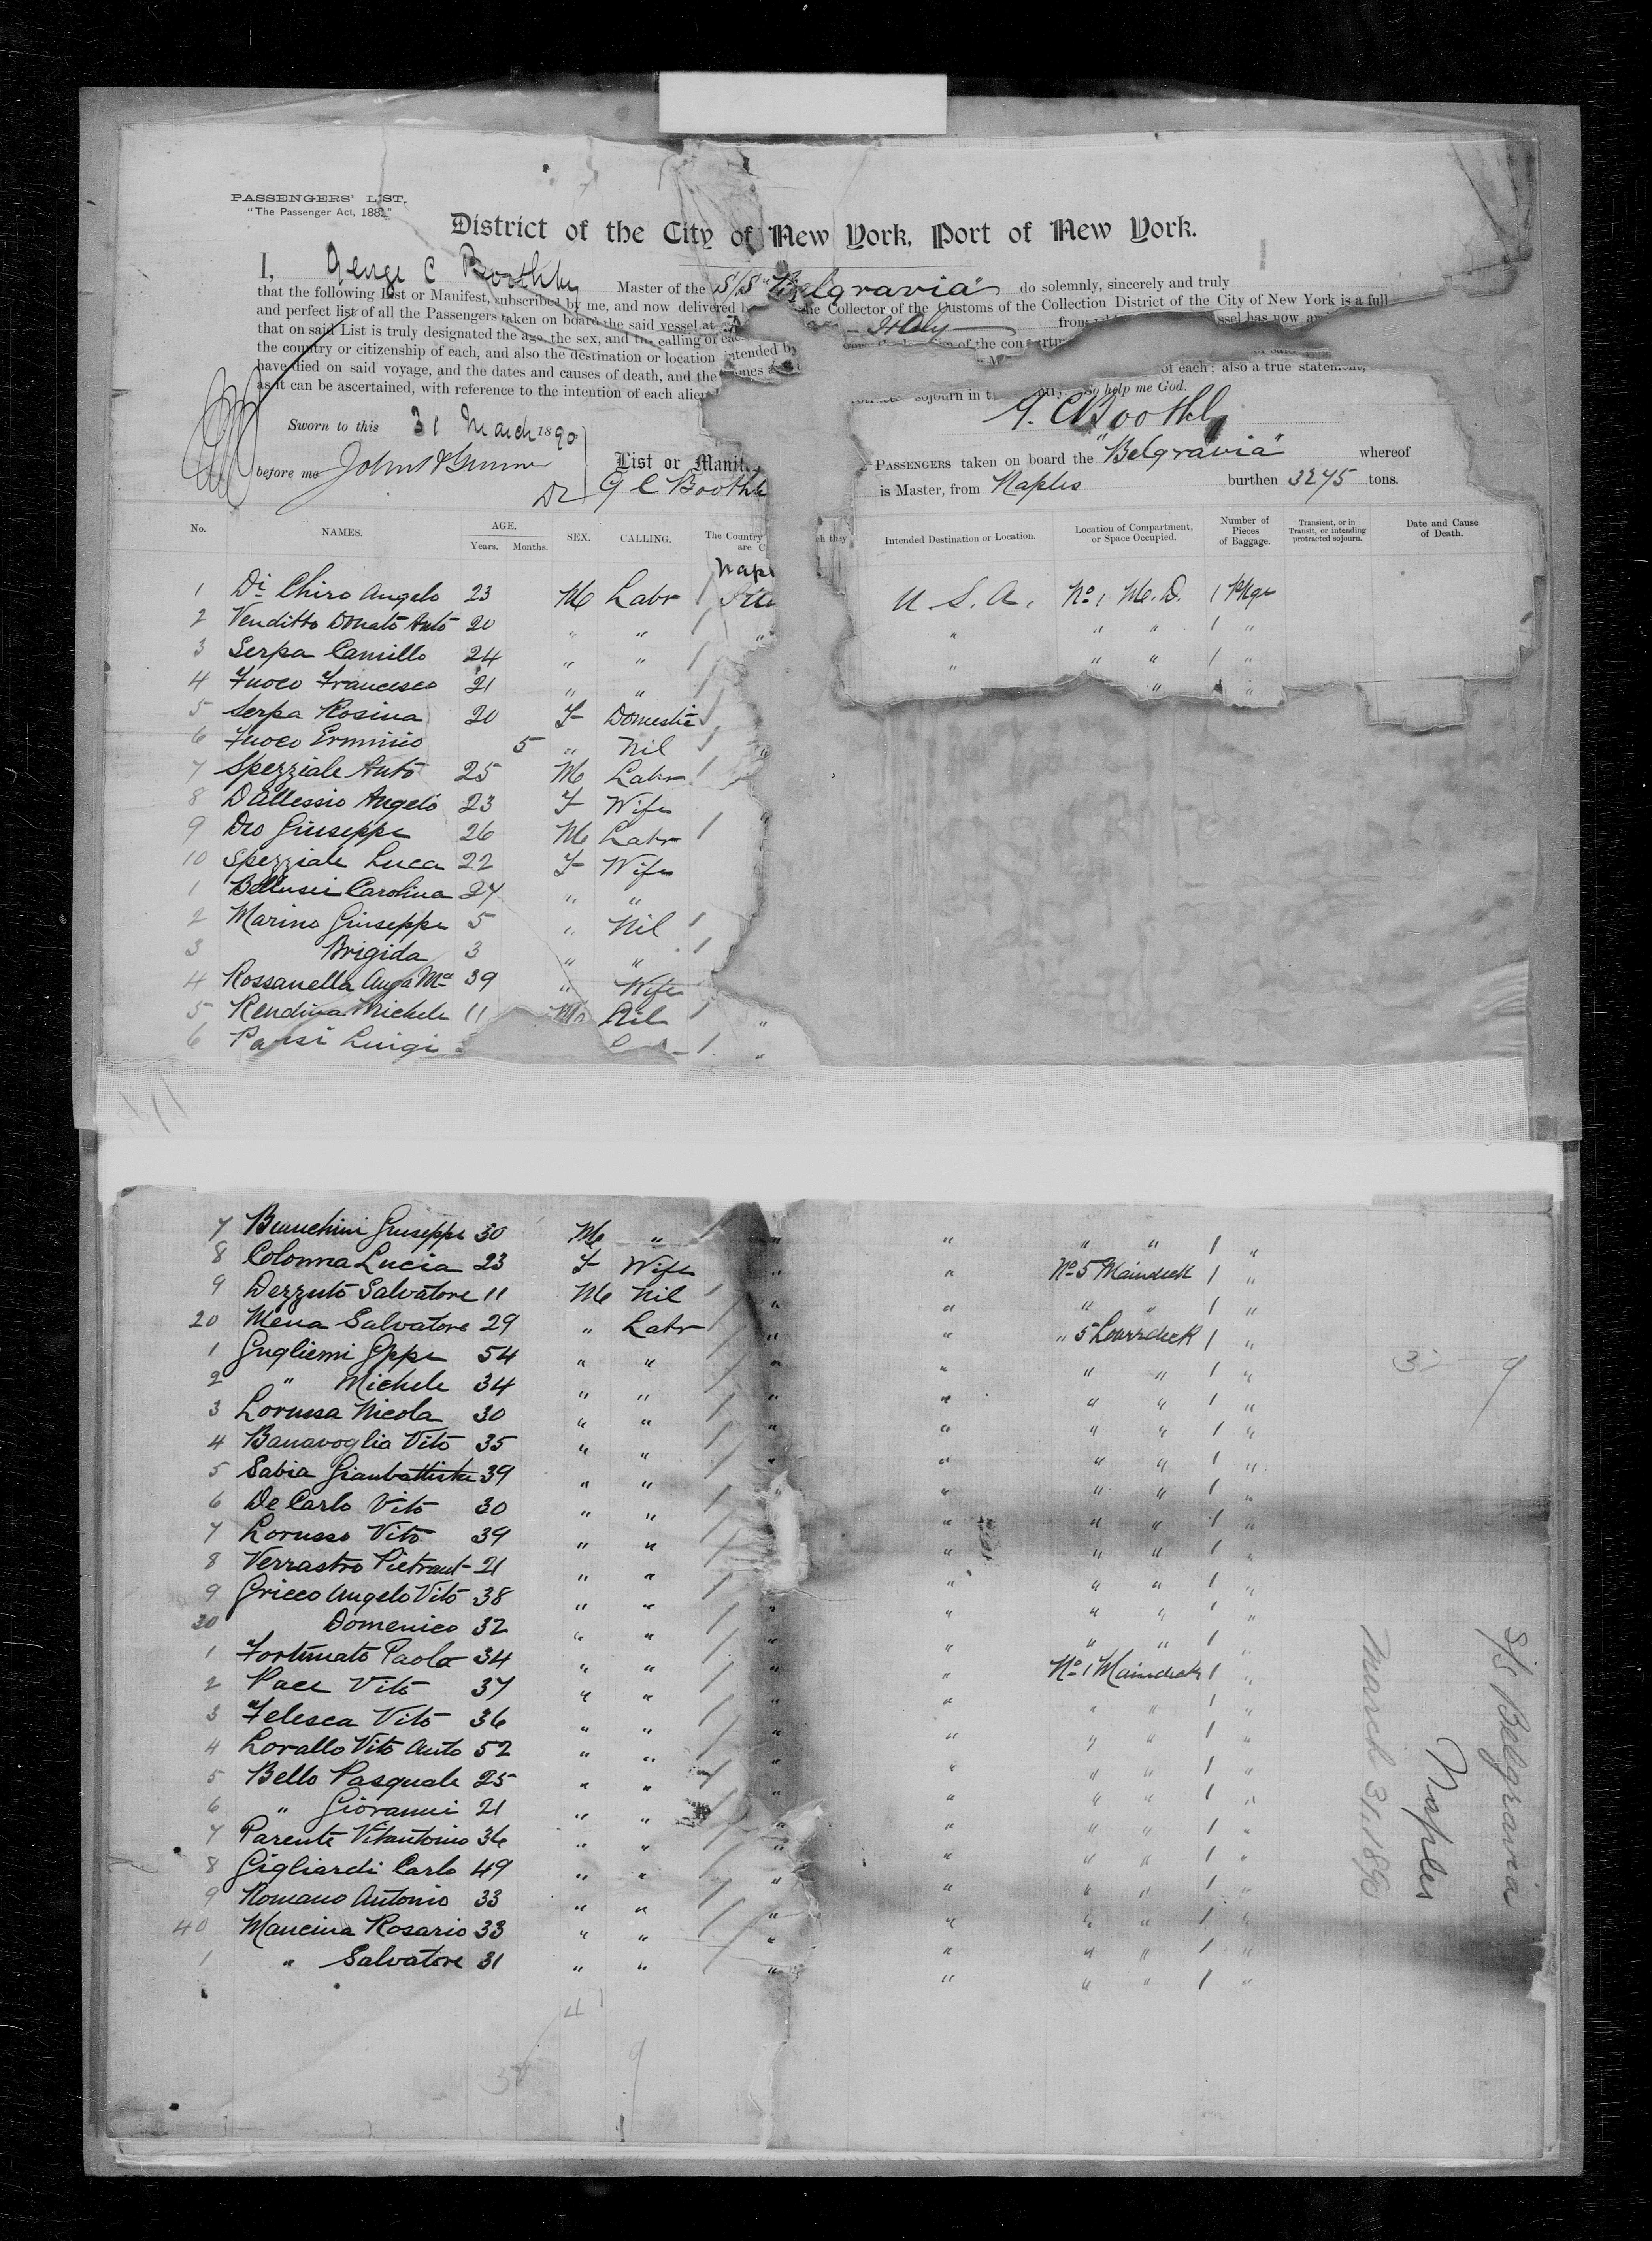 PASSENGERS' LIST.
"The Passenger Act, 1882."
District of the City of New York, Port of New York.
I, George C Boothby Master of the S/S "Belgravia" do solemnly, sincerely and truly
that the following List or Manifest, subscribed by me, and now delivered by the Collector of the Customs of the Collection District of the City of New York is a full
and perfect list of all the Passengers taken on board the said vessel at Italy from vessel has now
that on said List is truly designated the age, the sex, and the calling of each of the compartm
the country or citizenship of each, and also the destination or location intended by of said
have died on said voyage, and the dates and causes of death, and the names of each; also a true statement,
as it can be ascertained, with reference to the intention of each alien sojourn in t So help me God.
G. C Boothby
Sworn to this 31 March 1890
before me
List or Manif PASSENGERS taken on board the "Belgravia" whereof
G C Boothb is Master, from Naples burthen 3275 tons.
No. NAMES. AGE. Years. Months. SEX. CALLING. The Country are C ch they Intended Destination or Location. Location of Compartment, or Space Occupied. Number of Pieces of Baggage. Transient, or in Transit, or intending protracted sojourn. Date and Cause of Death.
Nap
1 Di Chiro Angelo 23 M Labr / U. S. A. No 1 M. D. 1 Pkge
2 Venditto Donato Anto 20 " " / " " " " 1 "
3 Serpa Camillo 24 " " / " " " 1 "
4 Fuoco Francesco 21 " " / " "
5 Serpa Rosina 20 F Domestic /
6 Fuoco Erminio 5 " Nil / "
7 Spezziale Anto 25 M Labr /
8 D'Allessio Angelo 23 F Wife "
9 Deo Giuseppe 26 M Labr /
10 Spezziale Luca 22 F Wife
1 Bellusci Carolina 27 " "
2 Marino Giuseppe 5 " Nil /
3 Brigida 3 " " /
4 Rossanella Anga Ma 39 " Wife
5 Rendina Michele 11 M Nil / "
6 Luigi / "
7 Giuseppe 30 M " / " " " " 1 "
8 Colonna Lucia 23 F Wife " " No 5 Maindeck 1 "
9 Dezzuto Salvatore 11 M Nil / " " " " 1 "
20 Mena Salvatore 29 " Labr / " " " 5 Lowerdeck 1 "
1 Gugliemi Gppe 54 " " / " " " " 1 "
2 " Michele 34 " " / " " " " 1 "
3 Lorussa Nicola 30 " " / " " " " 1 "
4 Banavoglia Vito 35 " " / " " " " 1 "
5 Sabia Gianbattista 39 " " / " " " " 1 "
6 De Carlo Vito 30 " " / " " " " 1 "
7 Lorusso Vito 39 " " / " " " " 1 "
8 Verrastro Pietrant 21 " " / " " " " 1 "
9 Gricco Angelo Vito 38 " " / " " " " 1 "
30 Domenico 32 " " / " " " " 1 "
1 Fortunato Paolo 34 " " / " " No 1 Maindeck 1 "
2 Pace Vito 37 " " / " " " " 1 "
3 Felesca Vito 36 " " / " " " " 1 "
4 Lorallo Vito Anto 52 " " / " " " " 1 "
5 Bello Pasquale 25 " " / " " " " 1 "
6 " Giovanni 21 " " / " " " " 1 "
7 Parente Vitantonio 36 " " / " " " " 1 "
8 Gigliardi Carlo 49 " " / " " " " 1 "
9 Romano Antonio 33 " " / " " " " 1 "
40 Mancina Rosario 33 " " / " " " " 1 "
1 " Salvatore 31 " " / " " " " 1 "
41
9
S/S Belgravia
Naples
March 31, 1890